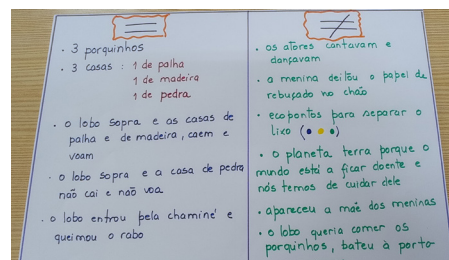 • 3 porquinhos
• 3 casas : 1 de palha
1 de madeira
1 de pedra
• o lobo sopra e as casas de
palha e de madeira, caem e
voam
• o lobo sopra e a casa de pedra
não cai e não voa
• o lobo entrou pela chaminé e
queimou o rabo
• os atores cantavam e
dançavam
• a menina deitou o papel de
rebuçado no chão
• ecopontos para separar o
lixo (•••)
• o planeta terra porque o
mundo está a ficar doente e
nós temos de cuidar dele
• apareceu a mãe das meninas
• o lobo queria comer os
porquinhos, bateu à porta